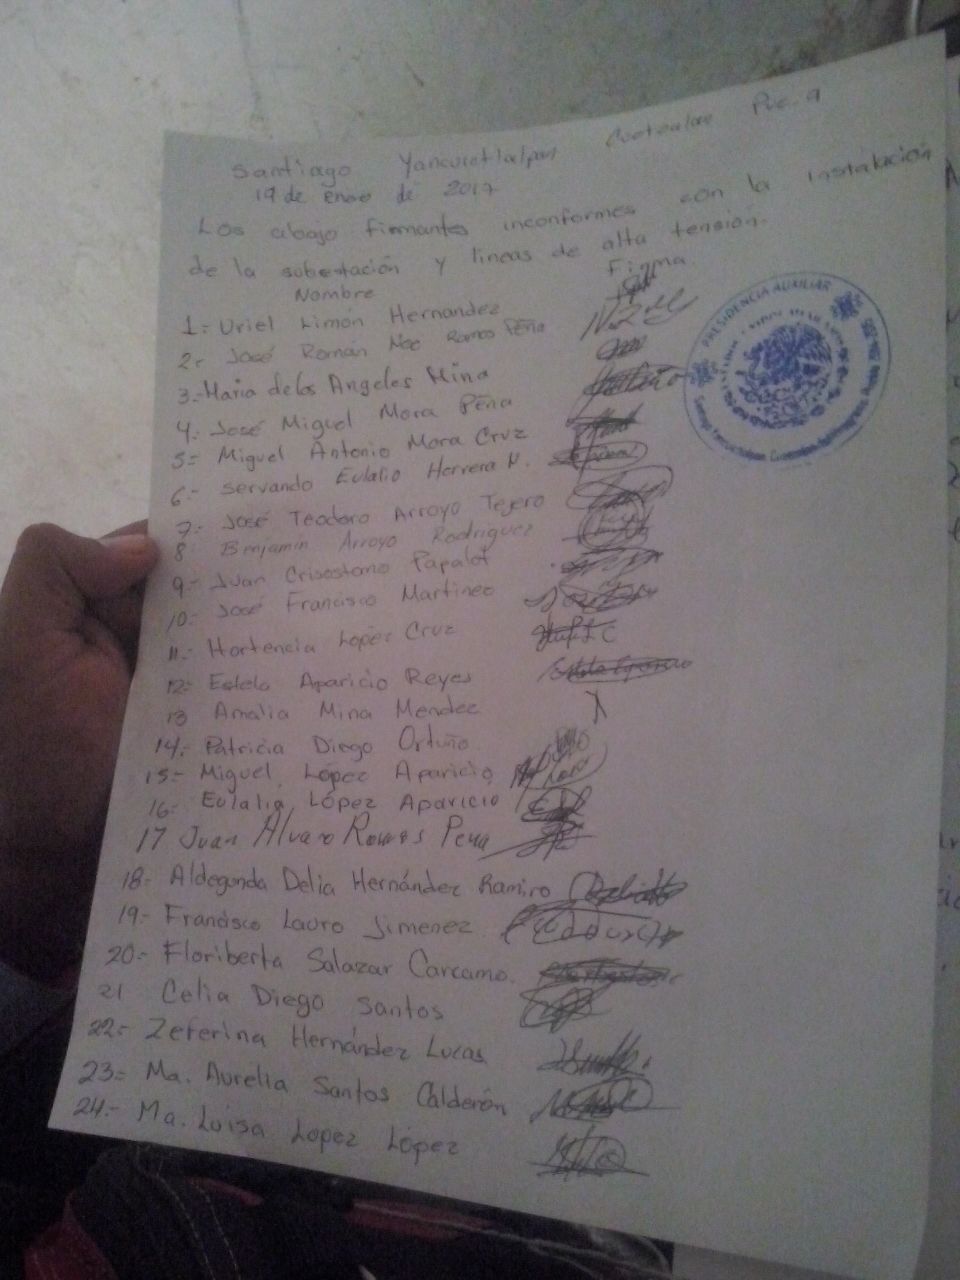 Santiago Yancuictlalpan Cuetzalan Pue. a
19 de enero de 2017
Los abajo firmantes inconformes con la instalación
de la subestación y lineas de alta tensión.
Nombre Firma
1.- Uriel Limón Hernandez
2.- José Román Noe Ramos Peña
3.- Maria de los Angeles Mina
4.- José Miguel Mora Peña
5.- Miguel Antonio Mora Cruz
6.- Servando Eulalio Herrera N.
7.- José Teodoro Arroyo Tejero
8 Benjamin Arroyo Rodriguez
9.- Juan Crisostomo Papalot
10.- José Francisco Martineo
11.- Hortencia Lopéz Cruz
12.- Estela Aparicio Reyes
13 Amalia Mina Mendez
14.- Patricia Diego Ortuño
15.- Miguel López Aparicio
16.- Eulalia López Aparicio
17 Juan Alvaro Ramos Pena
18.- Aldegunda Delia Hernández Ramiro
19.- Francisco Lauro Jimenez
20.- Floriberta Salazar Carcamo.
21 Celia Diego Santos
22.- Zeferina Hernández Lucas
23.- Ma. Aurelia Santos Calderón
24.- Ma. Luisa Lopez López
PRESIDENCIA AUXILIAR